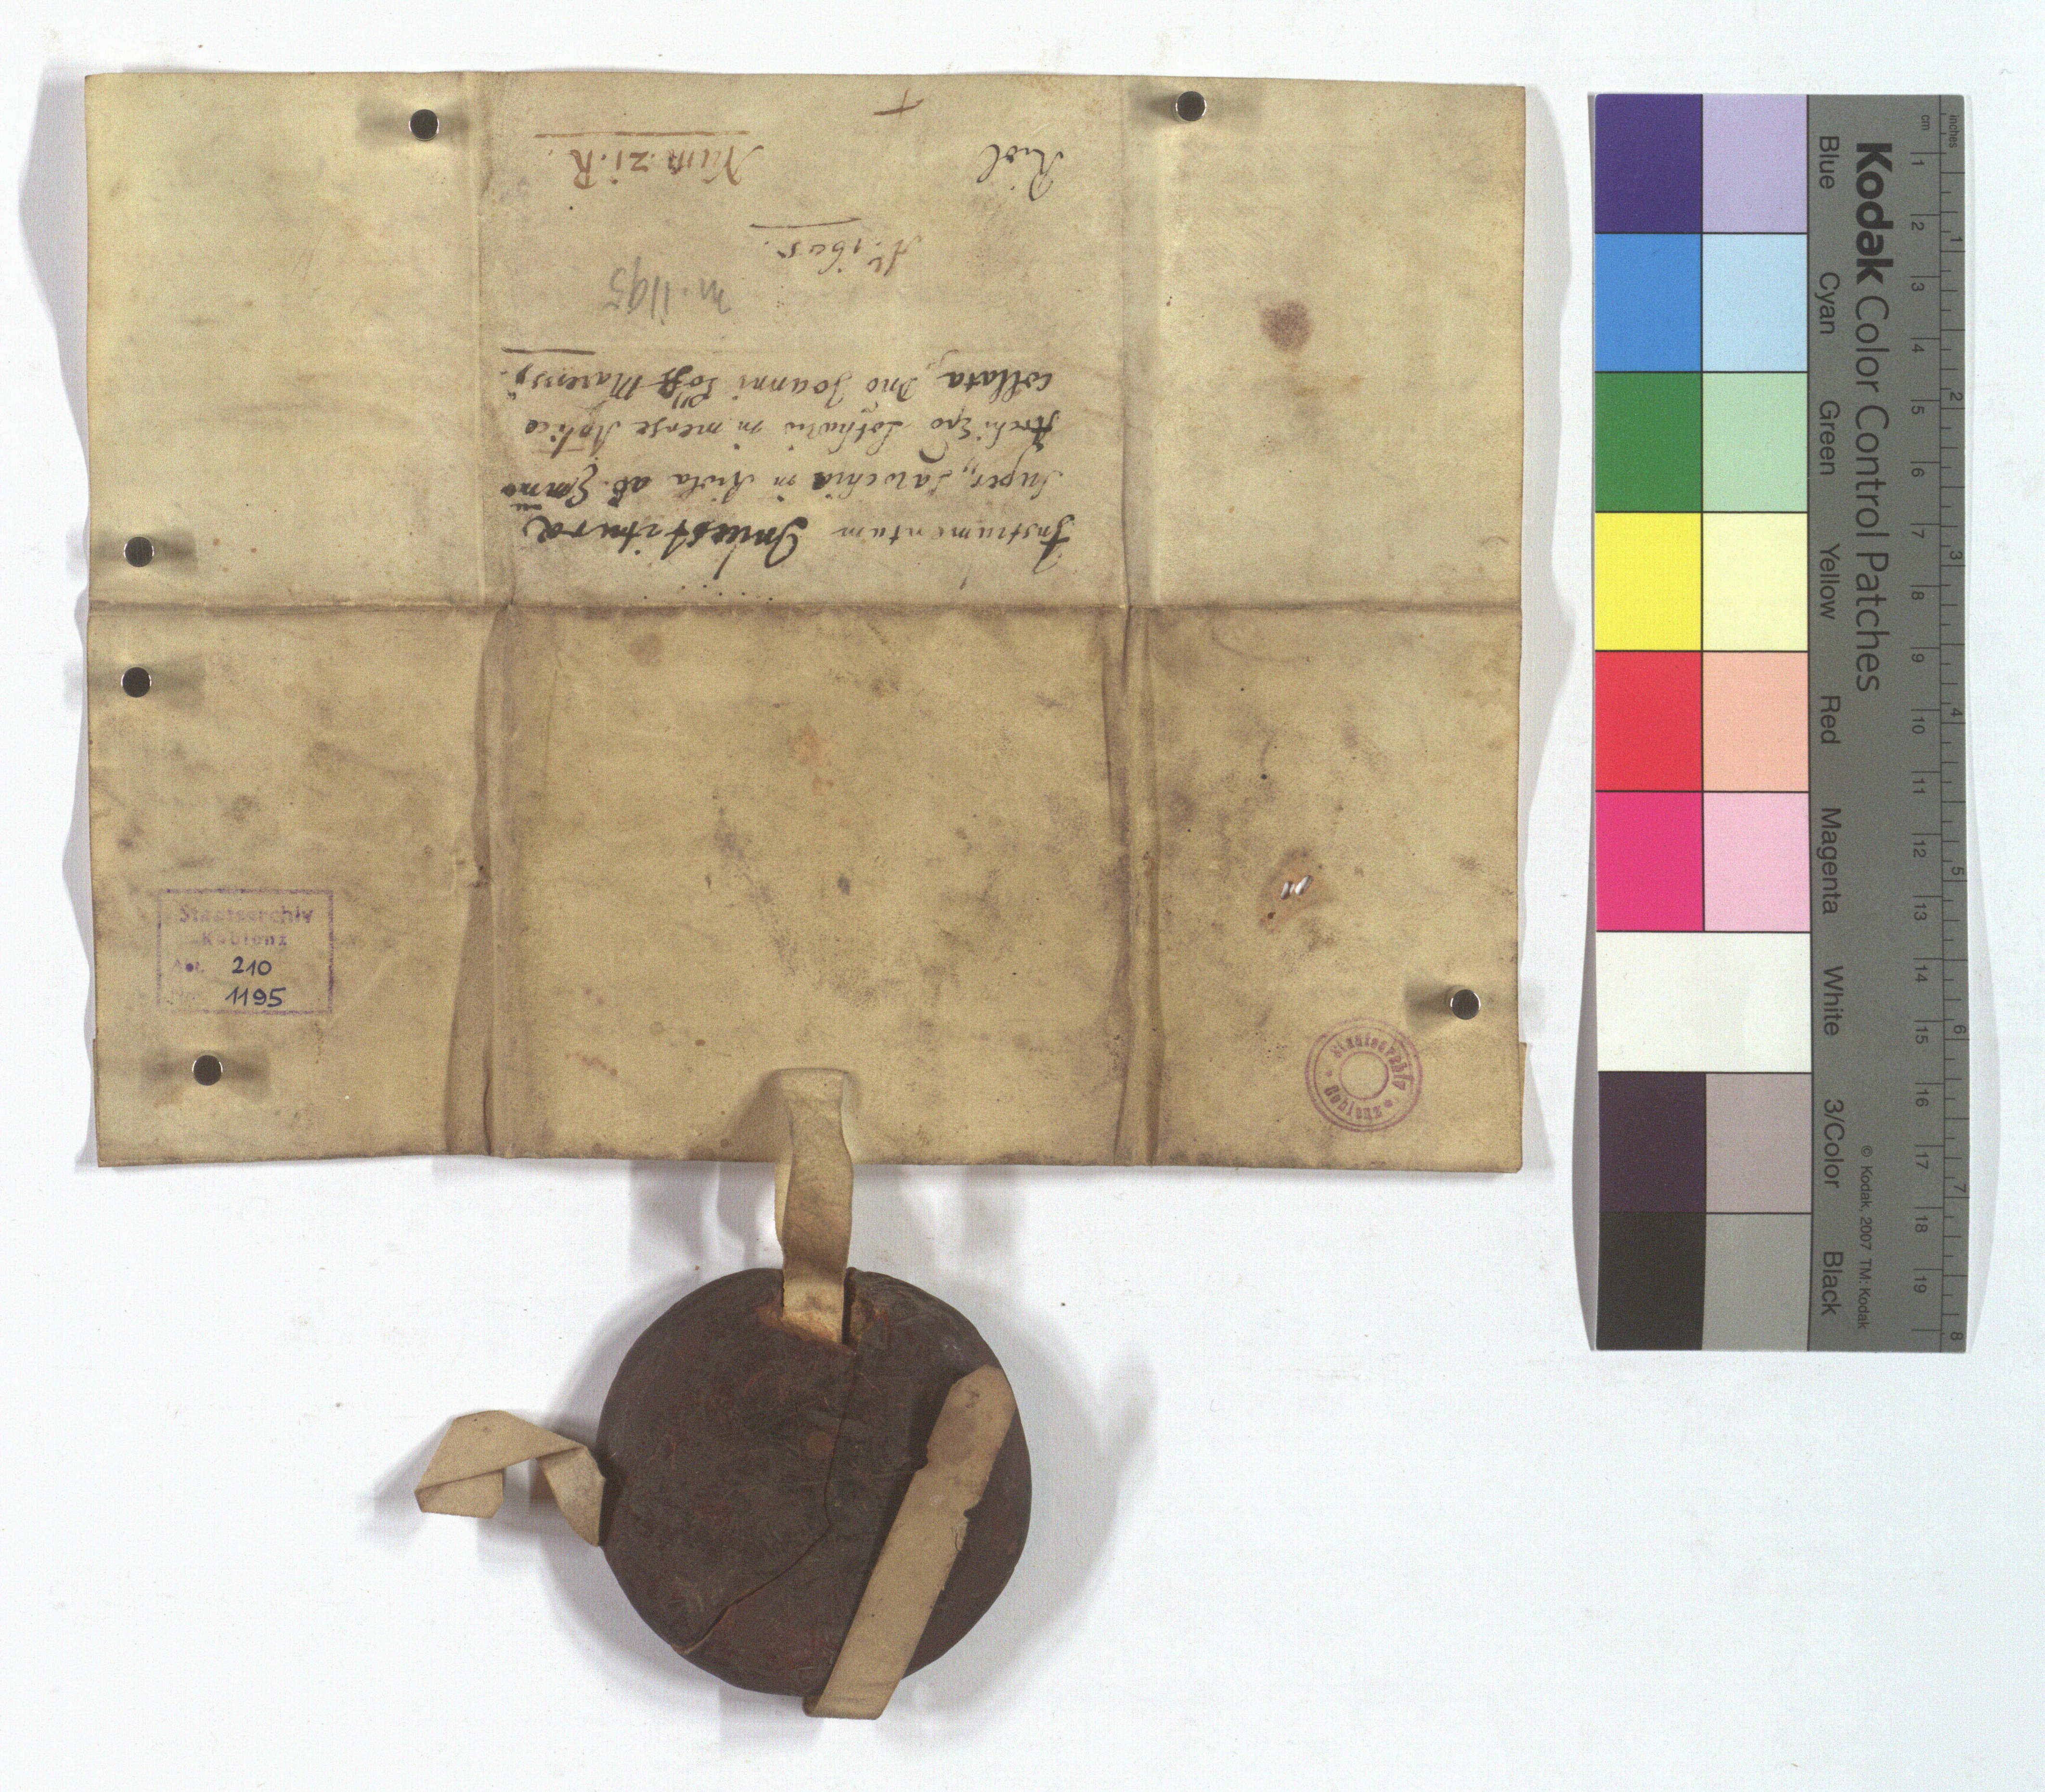 Instrumentum Inuestitura
super parochia in Riola ab Emmo
Archi Epo Lothario in mense Aplico
collata, Dno Joanni
m. 1195
Ao 1605.
Riol
Num: 21. R.
Staatsarchiv
Koblenz
Abt. 210
Nr. 1195
Staatsarchiv * Koblenz *
Kodak Color Control Patches
Blue
Cyan
Green
Yellow
Red
Magenta
White
3/Color
Black
© Kodak, 2007 TM: Kodak
inches
1
2
3
4
5
6
7
8
cm
1
2
3
4
5
6
7
8
9
10
11
12
13
14
15
16
17
18
19